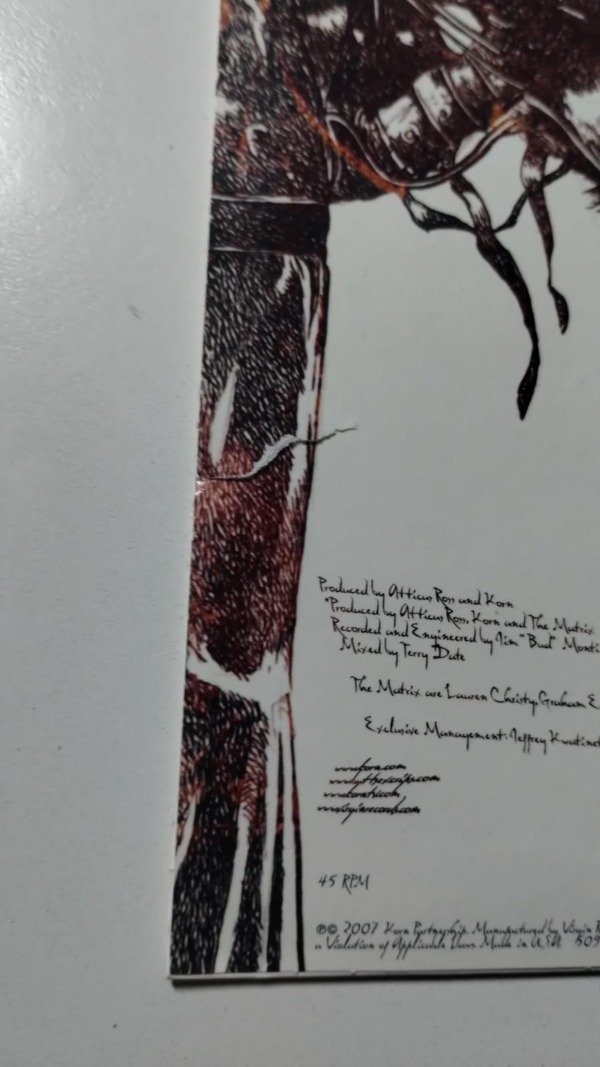 Produced by Atticus Ross and Korn
*Produced by Atticus Ross, Korn and The Matrix
Recorded and Engineered by Jim "Bud" Monti
Mixed by Terry Date
The Matrix are Lauren Christy, Graham E
Exclusive Management: Jeffrey Kwatinet
www.korn.com
www.korntv.com
www.virginrecords.com
45 RPM
℗© 2007 Korn Partnership. Manufactured by Virgin R
a Violation of Applicable Laws. Made in U.S.A. 509